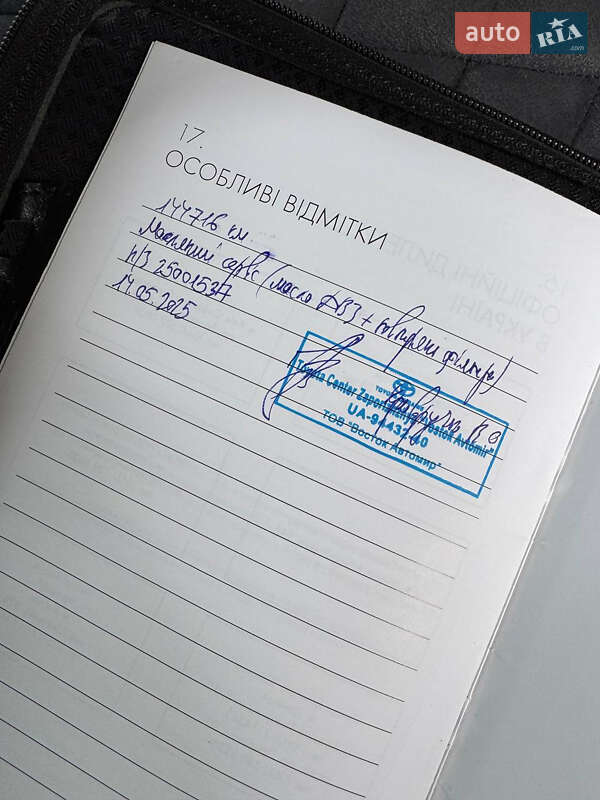 auto RIA.com
17.
ОСОБЛИВІ ВІДМІТКИ
144716 км
Масляний сервіс (масло ДВЗ + повітряні фільтри)
Н/З 25001537
14.05.2025
TOYOTA
Toyota Center Zaporizhzhia "Vostok Avtomir"
UA-94432-40
ТОВ "Восток Автомир"
В О